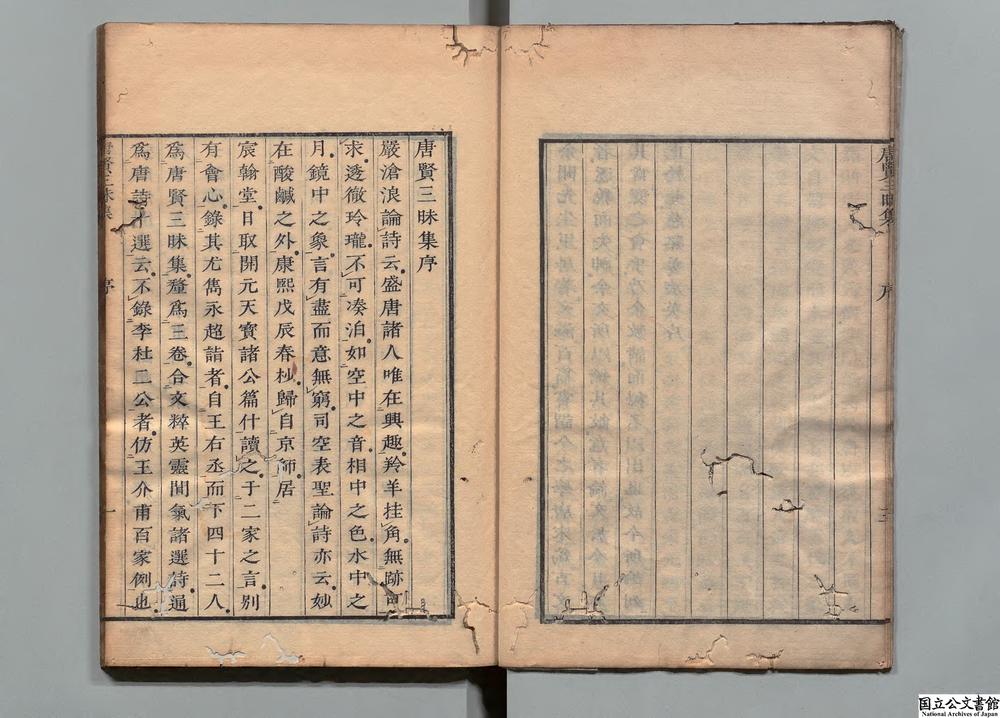 唐賢三昧集 序 三
唐賢三昧集序
嚴滄浪論詩云盛唐諸人唯在興趣羚羊挂角無跡可
求透徹玲瓏不可凑泊如空中之音相中之色水中之
月鏡中之象言有盡而意無窮司空表聖論詩亦云妙
在酸鹹之外康熙戊辰春杪歸自京師居
宸翰堂日取開元天寶諸公篇什讀之于二家之言别
有會心錄其尤雋永超詣者自王右丞而下四十二人
爲唐賢三昧集釐爲三卷合文粹英靈閒氣諸選詩通
爲唐詩十選云不錄李杜二公者仿王介甫百家例也
唐賢三昧集 序 一
国立公文書館
National Archives of Japan